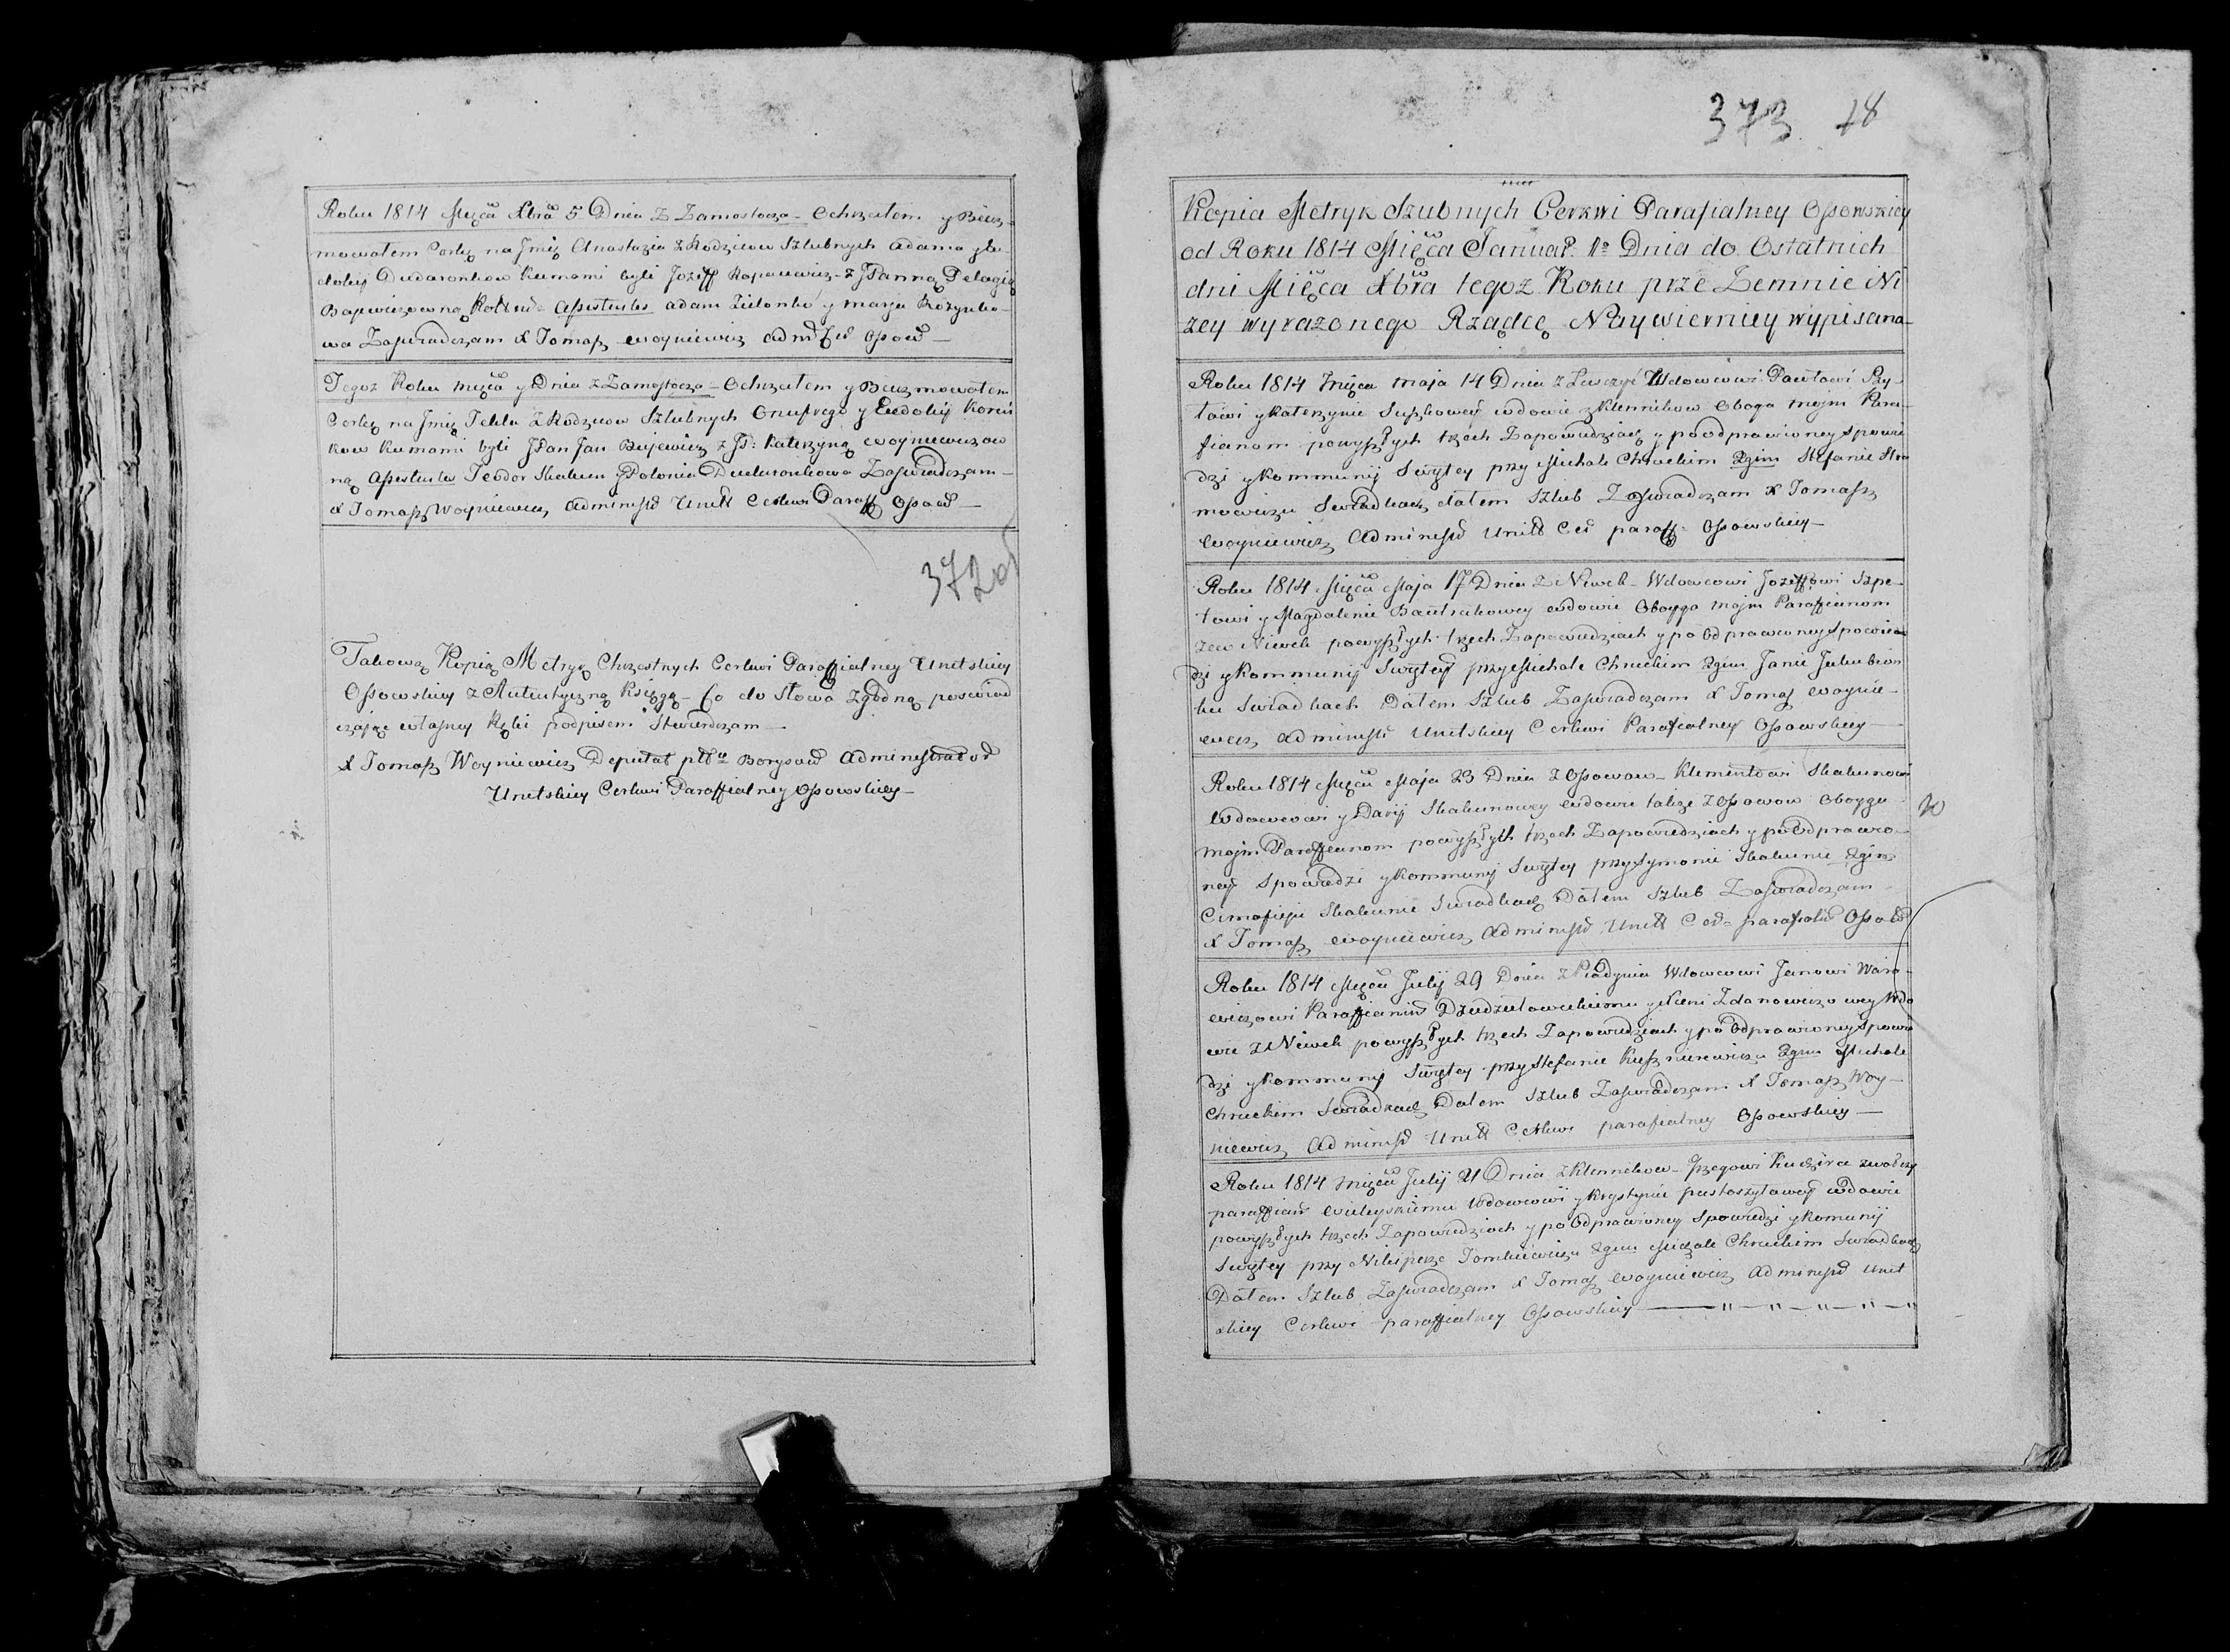 Roku 1814 Mięca Xbra 5 Dnia Z Zamostocza - Ochrzciłem y Bierz-
mowałem Corkę na Jmię Anastazia z Rodzicow Szlubnych Adama y Ew-
dokij Dudaronkow Kumami byli Joziff z JPanną Pelagią
Assistentes Adam Zielonko y Marja
wa Zaswiadczam X Tomasz Woyniewicz Admr
Tegoz Roku Mięca y Dnia z Zamostocza - Ochrzciłem y Bierzmowałem
Corkę na Jmię Tekla z Rodzicow Szlubnych Onufrego y Ewdokij
kow Kumami byli JPan Jan Bujewicz z JP: Katerzyną Woyniewiczow
ną Assistentes Teodor Skakun y Polonia Zaswiadczam -
X Tomasz Woyniewicz Administ Unitt Cerkwi Paraff Ossow -
372 об
Takową Kopię Metryk Chrzestnych Cerkwi Paraffialney Unitskiey
Ossowskiey z Autentyczną Księgą - Co do Słowa Zgodną poswiad
czając własney Ręki podpisem Stwierdzam -
X Tomasz Woyniewicz Deputat Borysow Administrator
Unitskiey Cerkwi Paraffialney Ossowskiey -
373 18
Kopia Metryk Szubnych Cerkwi Parafialney Ossowskiey
od Roku 1814 Mięca Januar. 1o Dnia do Ostatnich
dni Mięca Xbra tegoz Roku prze Zemnie Ni
zey wyrazonego Rządcę Naywierniey wypisana -
Roku 1814 Mięca Maja 14 Dnia z Wdowcowi Pawłowi Szy-
łowi y Katerzynie Suszkowey wdowie z Klennikow Oboga moym Para-
fianom powyszłych trzech Zapowiedziach y po odprawioney Spowie
dzi y Kommunij Swiętey przy Michale Chruckim 2gim Stefanie
mowiczu Swiadkach dałem Szlub Zaswiadczam X Tomasz
Woyniewicz Administ Unitt Cer paraff - Ossowskiey -
Roku 1814 Mięca Maja 17 Dnia Z Niwek - Wdowcowi Jozeffowi Szpe-
towi y Magdalenie wdowie Oboyga moym Paraffianom
zew Niwek powyszłych trzech Zapowiedziach y po Odprawioney Spowie
dzi y Kommunij Swiętey przy Michale Chruckim 2gim Janie Jakubion
ku Swiadkach Dałem Szlub Zaswiadczam X Tomasz Woynie-
wicz Administ Unitskiey Cerkwi Parafialney Ossowskiey -
Roku 1814 Mięca Maja 23 Dnia z Ossowow - Klementowi Skakunowi
Wdowcowi y Darij Skakunowey wdowie takze z Ossowow Oboyga
moym Paraffianom powyszłych trzech Zapowiedziach y po Odprawio-
ney Spowiedzi y Kommunij Swiętey przy Symonie Skakunie 2gim
Cimafieju Skakunie Swiadkach Dałem Szlub Zaswiadczam
X Tomasz Woyniewicz Administ Unitt Cer - parafial Ossow
20
Roku 1814 Mięca Julij 29 Dnia z Wdowcowi Janowi
wiczowi Paraffianin y Xeni Zdanowiczowey Wdo
wie z Niwek powyszłych trzech Zapowiedziach y po Odprawioney Spowie
dzi y Kommunij Swiętey przy Stefanie Kusznierewiczu 2gim Michale
Chruckim Swiadkach Dałem Szlub Zaswiadczam X Tomasz Woy-
niewicz Administ Unitt Cerkwi parafialney Ossowskiey -
Roku 1814 Mięca Julij 21 Dnia z Klennikow -
paraffian Wdowcowi y Krystynie wdowie
powyszłych trzech Zapowiedziach y po Odprawioney Spowiedzi y Komunij
Swiętey przy Tomkiewiczu 2gim Michale Chruckim Swiadkach
Dałem Szlub Zaswiadczam X Tomasz Woyniewicz Administ Unit
skiey Cerkwi paraffialney Ossowskiey -